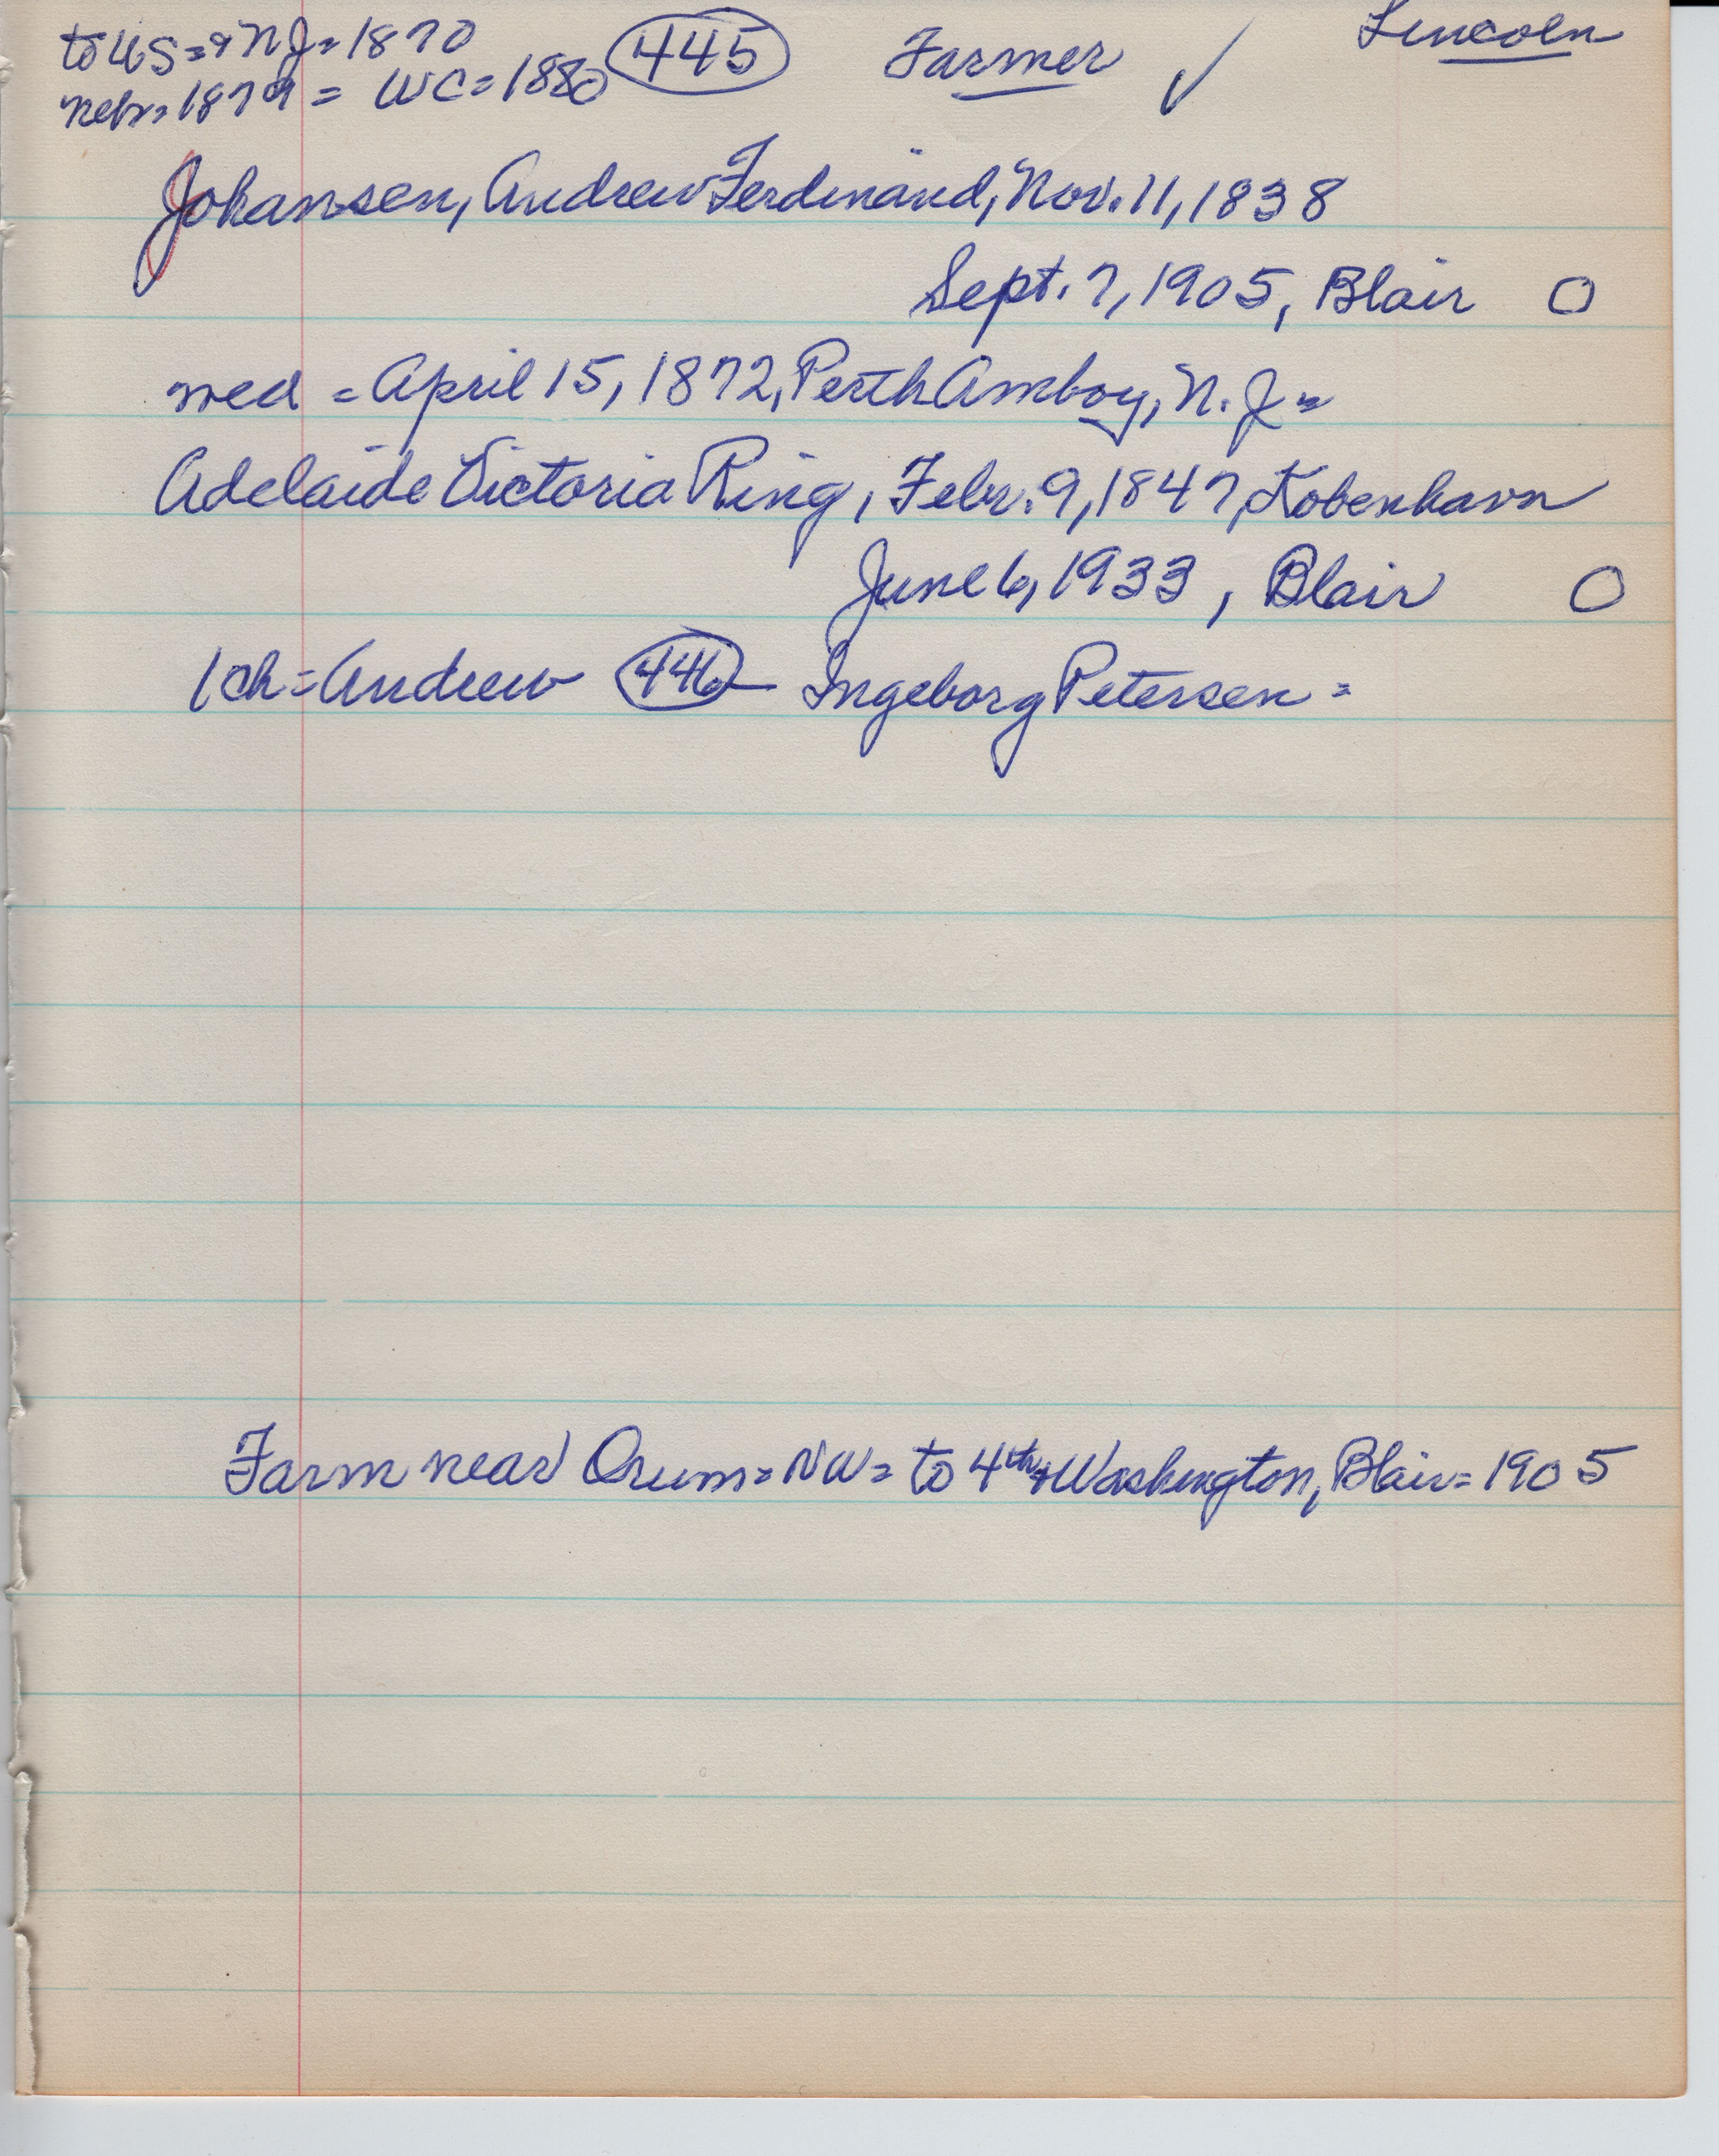 to US = & NJ = 1870
Nebr = 1879 = WC = 1880
445 Farmer ✓ Lincoln
Johansen, Andrew Ferdinand, Nov. 11, 1838
Sept. 7, 1905, Blair O
wed = April 15, 1872, Perth Amboy, N. J =
Adelaide Victoria Ring, Febr. 9, 1847, Kobenhavn
June 6, 1933, Blair O
1 ch = Andrew 446 — Ingeborg Petersen =
Farm near Orum = NW = to 4th & Washington, Blair = 1905